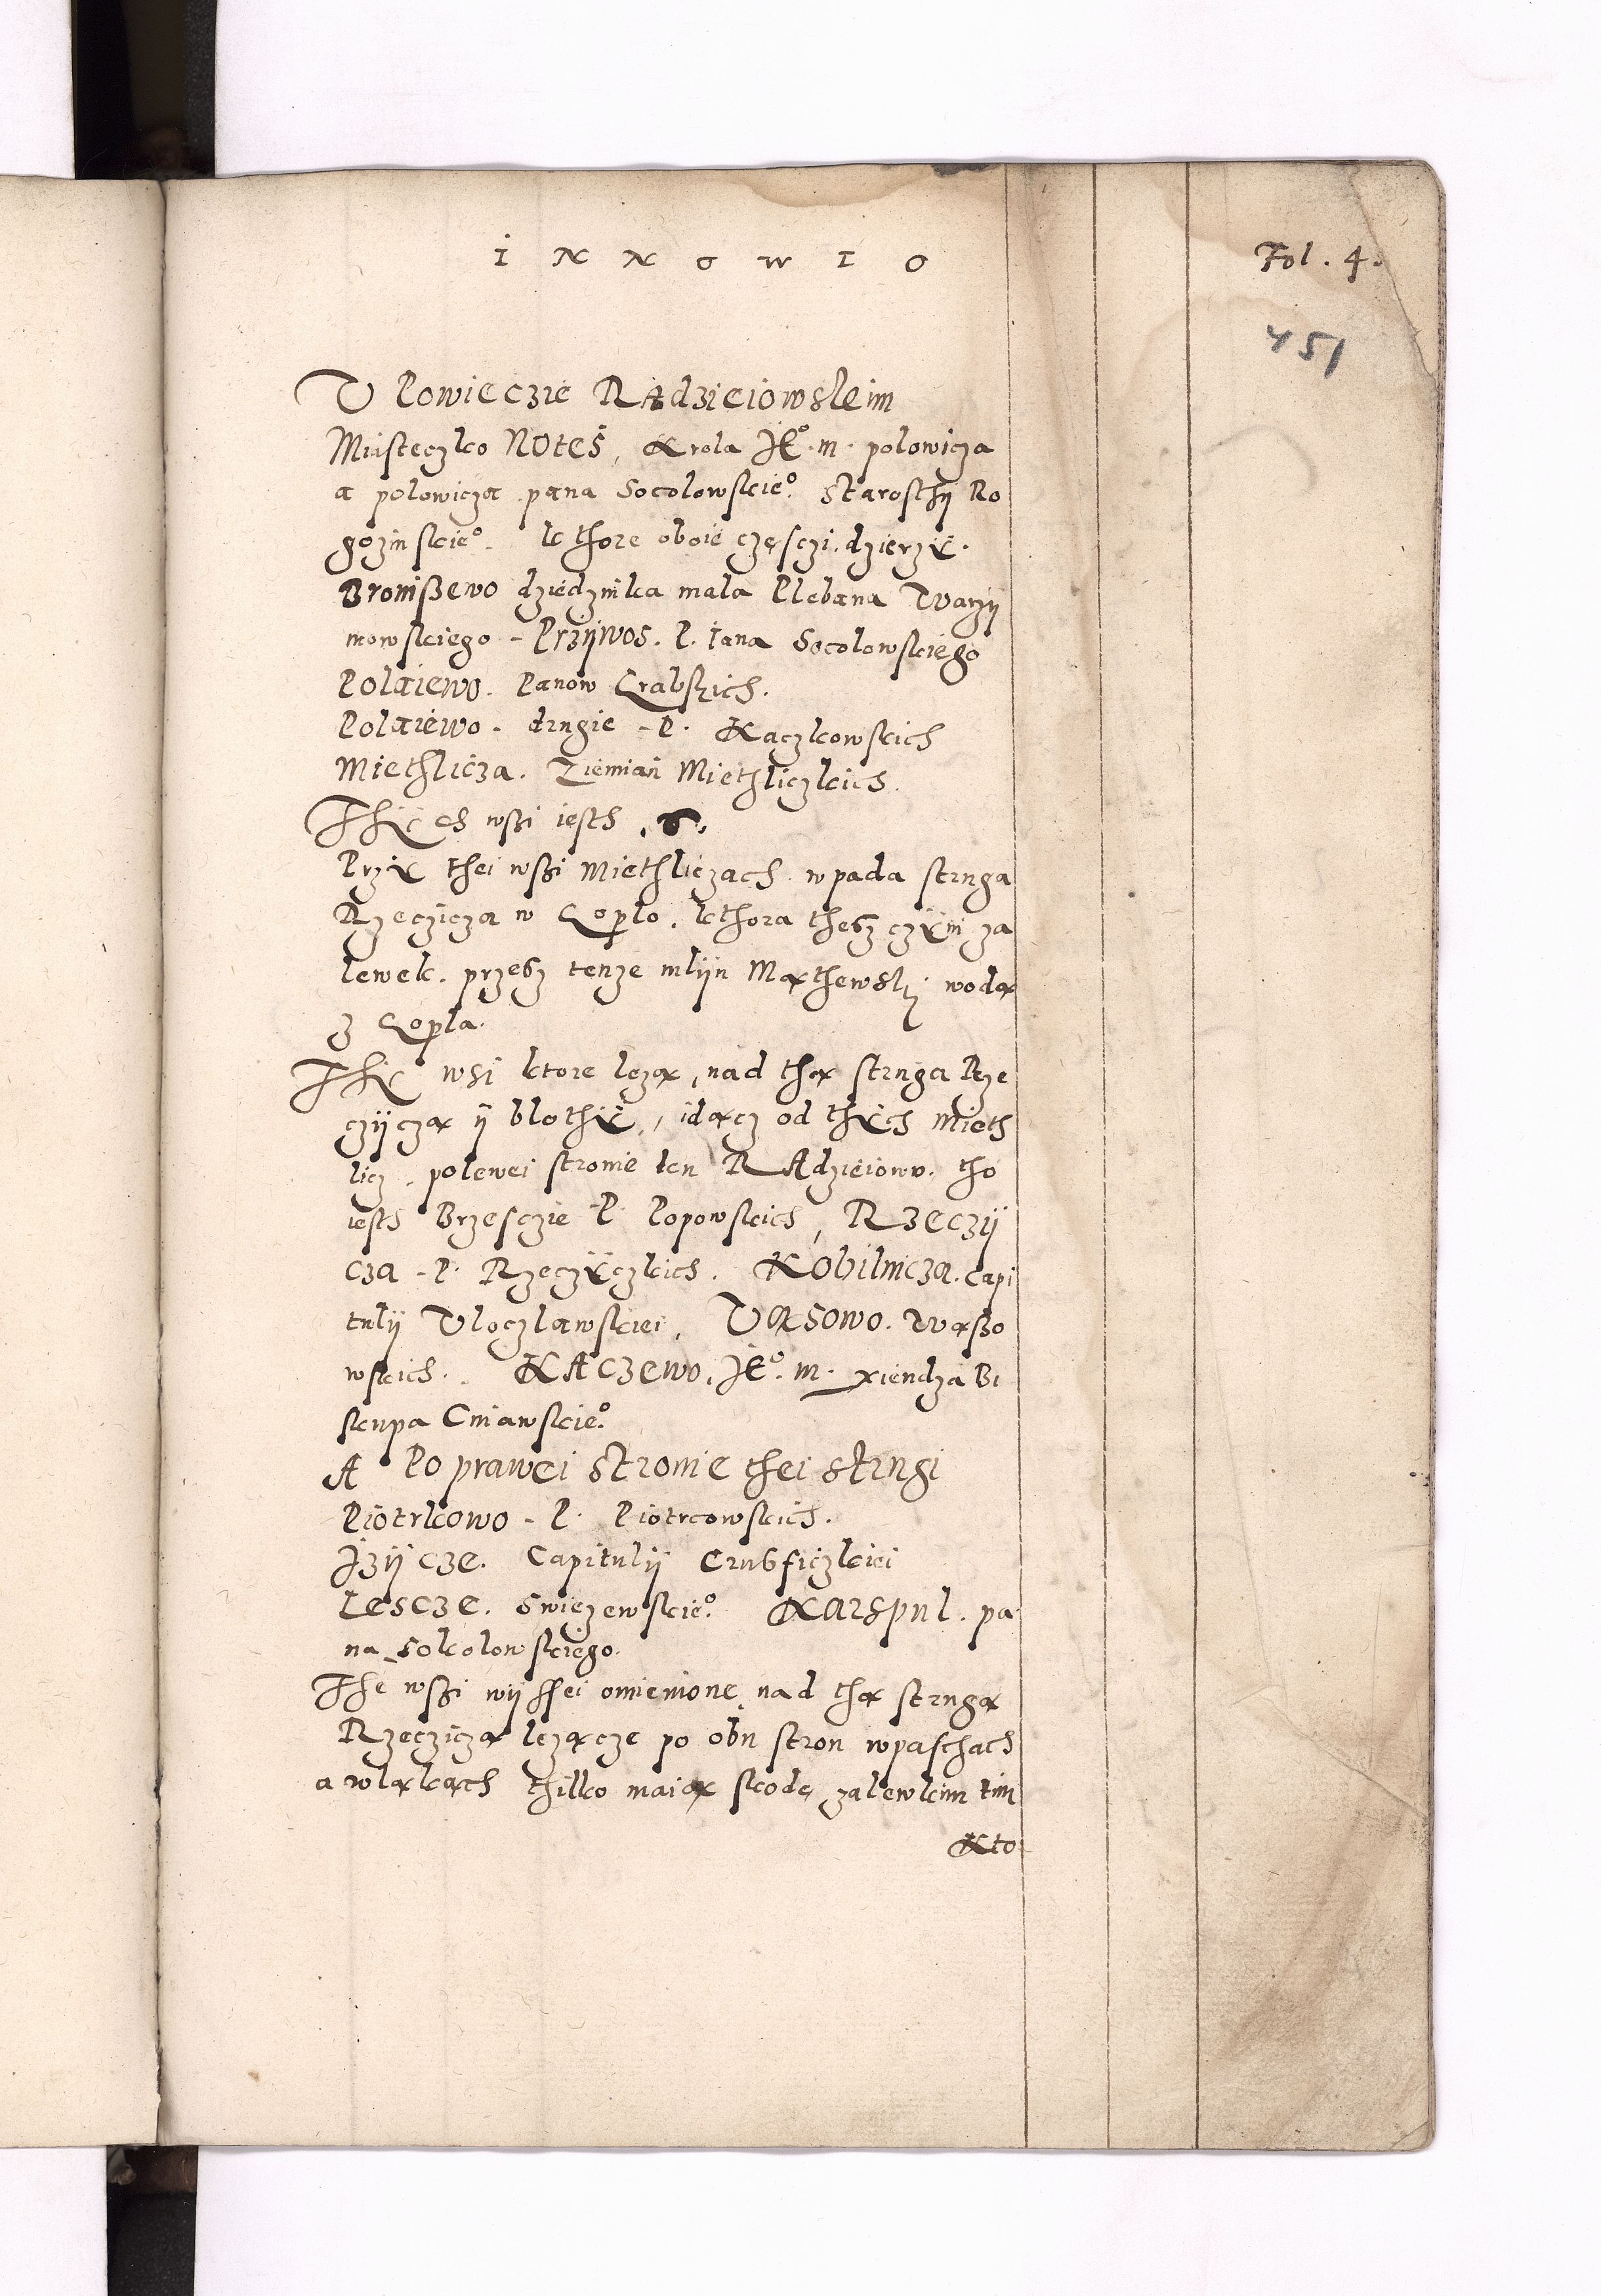 INNOWIO
Fol. 4.
451
W Powieczie RAdzieiowskim
Miasteczko Noteś, Krola JEº. m. polowicza
a polowicza pana Socolowskieº. Starosthÿ Ro
gozinskieº. kthore oboie częsczi dzierzÿ.
Broniszewo dziedzinka mala Plebana Warzÿ
mowskiego - Przÿwos. P. Iana Socolowskiego
Polaiewo. Panow Grabskich.
Polaiewo. drugie - P. Kaczkowskich
Miethlicza. Ziemian Miethliczkich.
Thÿch wszi iesth .6.
Przÿ thei wszi Miethliczach wpada struga
Rzeczicza w Goplo. kthora thesz czÿni za
lewek. przesz tenze mlÿn Mathewski wodą
z Gopla.
Thÿ wsi ktore lezą, nad thą struga Rze
czÿczą ÿ blothÿ, idącz od thÿch Mieth
licz. polewei stronie ku RAdzieiowu. tho
iesth Brzesczie P. Popowskich, Rzeczÿ
cza - P. Rzeczÿczkich. Kobilnicza. Capi
tulÿ Wloczlawskiei, Wąsowo. Wąszo
wskich. KAczewo. JEº. m. xiendza Bi
skupa Cuiawskieº.
A Po prawei stronie thei strugi
Piotrkowo - P. Piotrcowskich.
Jzÿcze. Capitulÿ Crusficzkiei
Lescze. Swięzewskieº. Karspul. pa
na Sokolowskiego.
The wszi wÿssei omienione nad thą strugą
Rzecziczą lezącze po obu stron wpaschach
a wląkach thilko maią skodę zalewkim tim
Kto